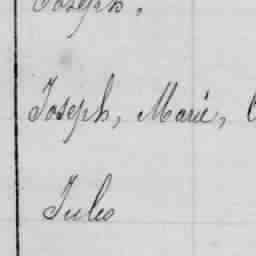 Joseph.
Joseph, Marie,
Jules